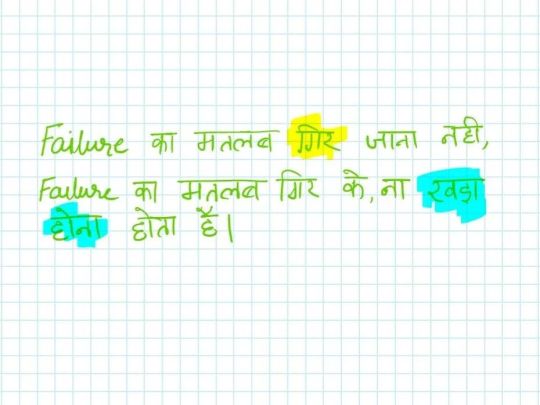 Failure का मतलब गिर जाना नही,
Failure का मतलब गिर के, ना खड़ा
होना होता है।